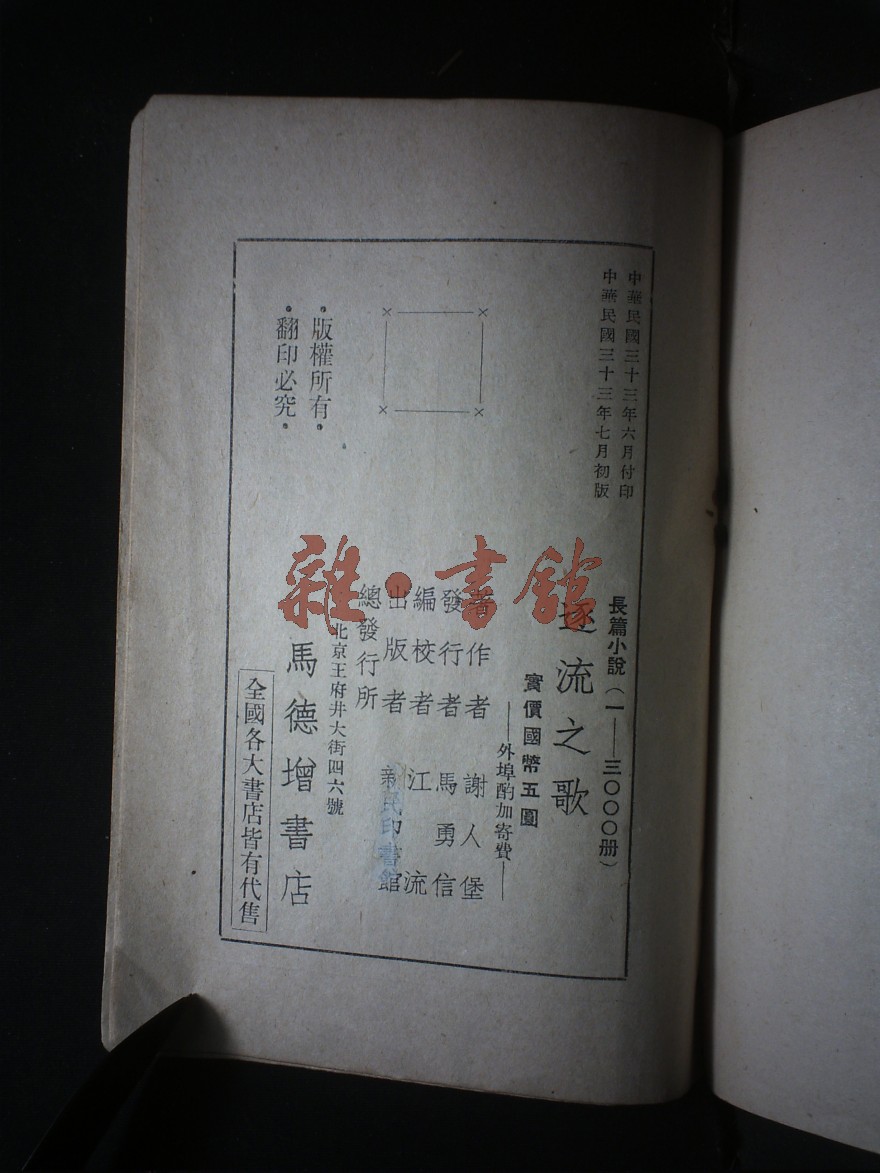 中華民國三十三年六月付印
中華民國三十三年七月初版
長篇小說（一——三〇〇〇册）
逐流之歌
實價國幣五圓
——外埠酌加寄費——
著作者 謝人堡
發行者 馬勇信
編校者 江流
出版者 新民印書館
總發行所
北京王府井大街四六號
馬德增書店
全國各大書店皆有代售
·版權所有·
·翻印必究·
雜·書館